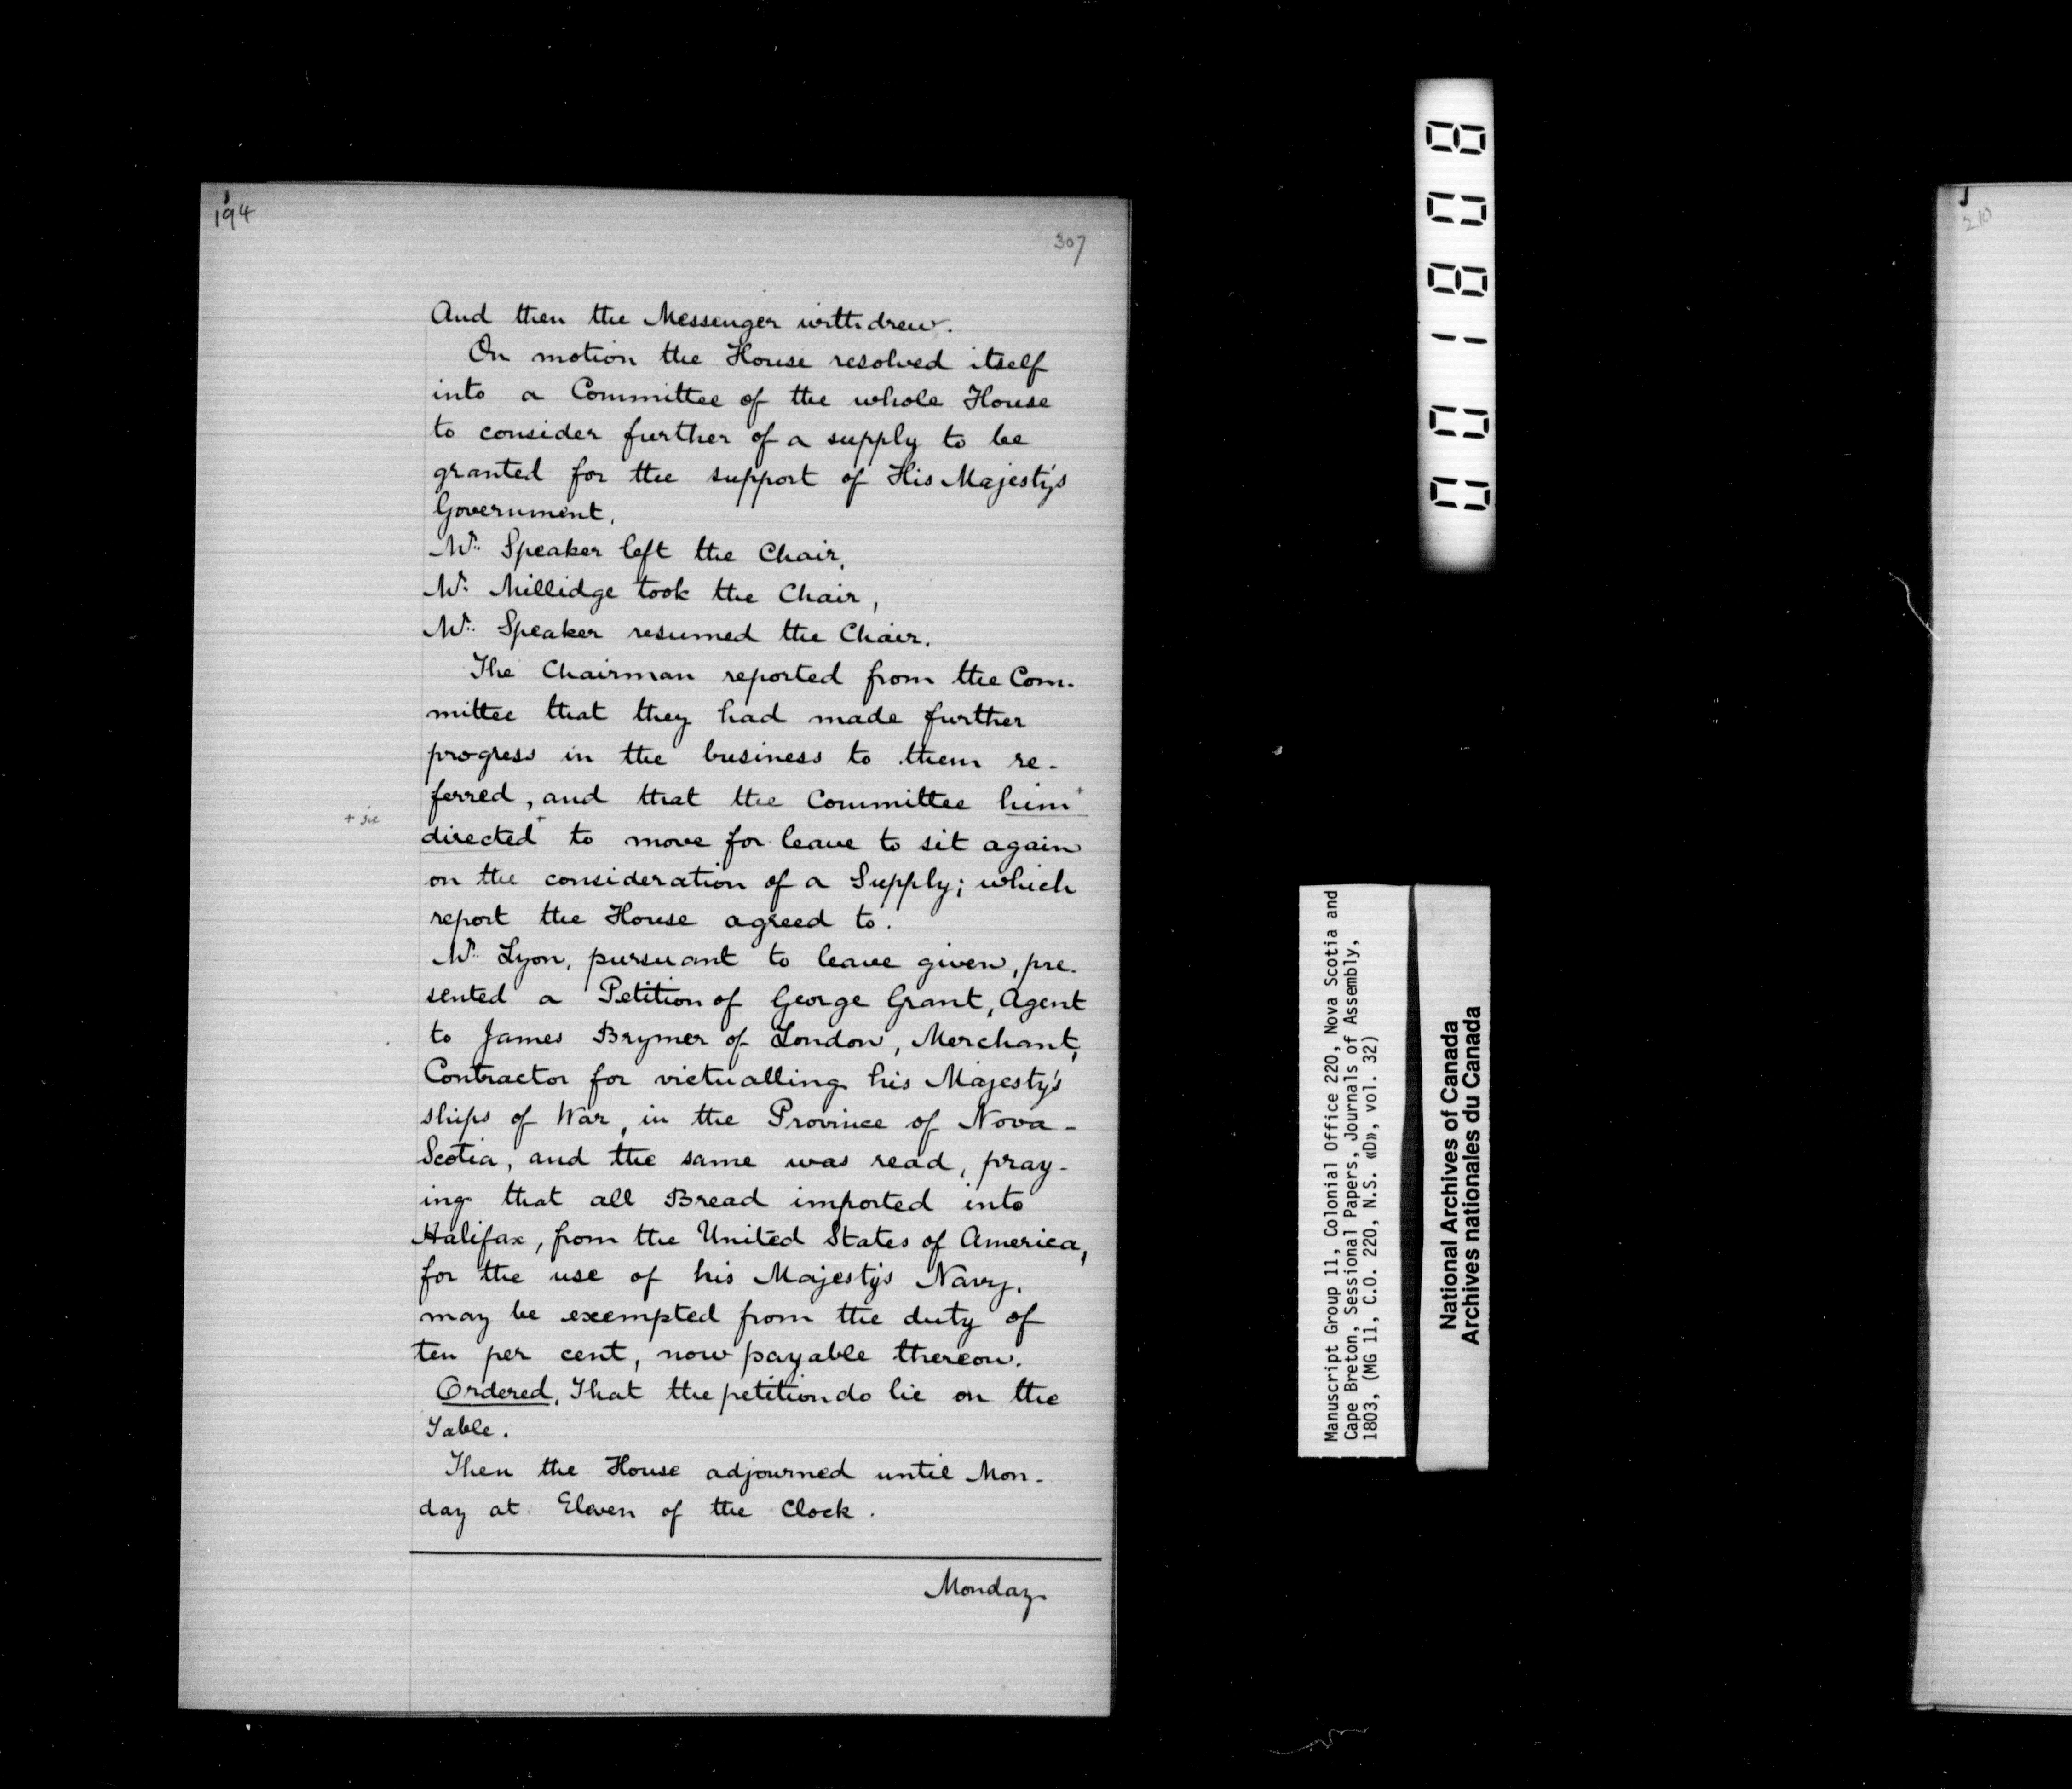 194
307
And then the Messenger withdrew.
On motion the House resolved itself
into a Committee of the whole House
to consider further of a supply to be
granted for the support of His Majesty's
Government.
Mr. Speaker left the Chair,
Mr. Millidge took the Chair,
Mr. Speaker resumed the Chair.
The Chairman reported from the Com-
mittee that they had made further
progress in the business to them re-
ferred, and that the Committee him+
+ sic
directed+ to move for leave to sit again
on the consideration of a Supply; which
report the House agreed to.
Mr. Lyon, pursuant to leave given, pre-
sented a Petition of George Grant, Agent
to James Brymer of London, Merchant,
Contractor for victualling his Majesty's
ships of War, in the Province of Nova-
Scotia, and the same was read, pray-
ing that all Bread imported into
Halifax, from the United States of America,
for the use of his Majesty's Navy,
may be exempted from the duty of
ten per cent, now payable thereon.
Ordered, That the petition do lie on the
Table.
Then the House adjourned until Mon-
day at Eleven of the Clock.
Monday
00 1808
Manuscript Group 11, Colonial Office 220, Nova Scotia and
Cape Breton, Sessional Papers, Journals of Assembly,
1803, (MG 11, C.O. 220, N.S. «D», vol. 32)
National Archives of Canada
Archives nationales du Canada